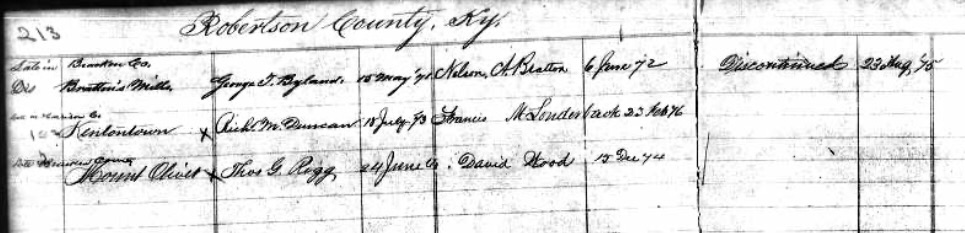 213
Robertson County, Ky.
Late in Bracken Co.
Bratton's Mills George T. Byland. 15 May '71 Nelson, A. Bratton 6 June 72 Discontinued 23 Aug, '75
Kentontown x Rich. M. Duncan 18 July 73 Francis M Louderback 23 Feb 76
Mount Olivet x Thos G. Rigg 24 June David Wood 15 Dec 74